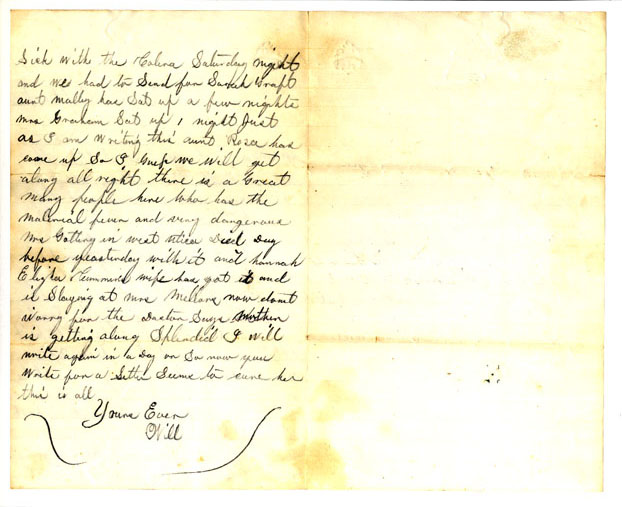 Sick With the Colera Saturday night
and we had to Send for Sarah Graft
aunt molly has Sat up a few nights
mrs Graham Sat up 1 night Just
as I am Writing this aunt Rosea has
come up So I Guess we Will get
along all right there is a Great
many people here Who has the
malierial fever and very dangerous
Mrs Gotting in west utica Died Day
before yeasterday with it and hannah
Elijta wife has got it and
is Staying at mrs now dont
Worry for the Doctor Says Mother
is getting along Splendid I Will
write again in a Day or So now you
Write for a Letter Seems to cure her
this is all
Yours Ever
Will